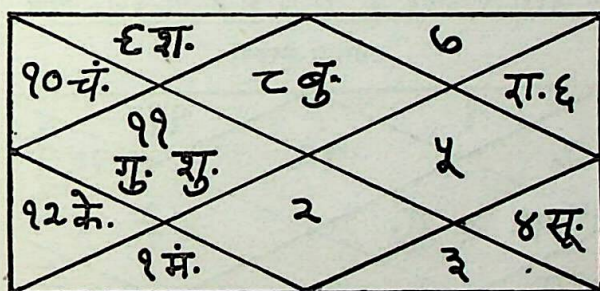 ९ श.
७
१० चं.
८ बु.
रा. ६
११
गु. शु.
५
१२ के.
२
४ सू.
१ मं.
३